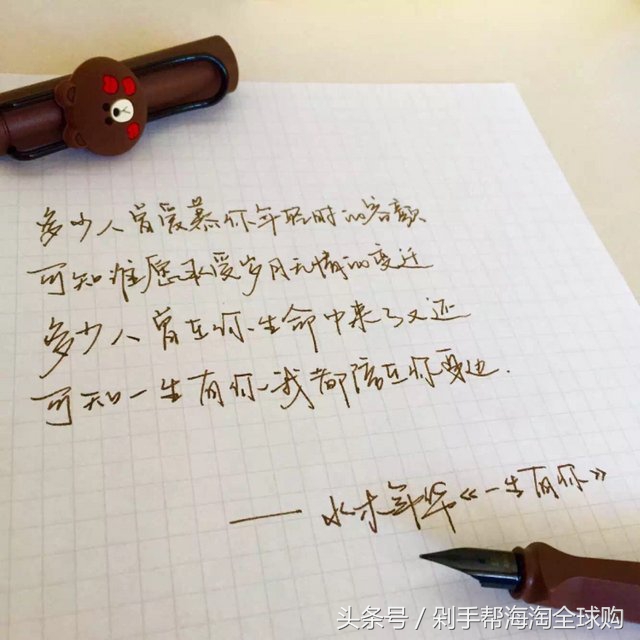 多少人曾爱慕你年轻时的容颜
可知谁愿承受岁月无情的变迁
多少人曾在你生命中来了又还
可知一生有你我都陪在你身边.
—— 水木年华《一生有你》
头条号 / 剁手帮海淘全球购